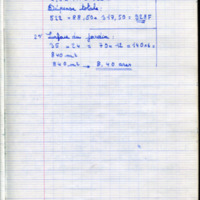 Dépense totale :
822 + 88,50 + 317,50 =
2° Surface du jardin :
35 × 24 = 70 × 12 = 140 × 6 =
840 m²
840 m² → 8,40 ares